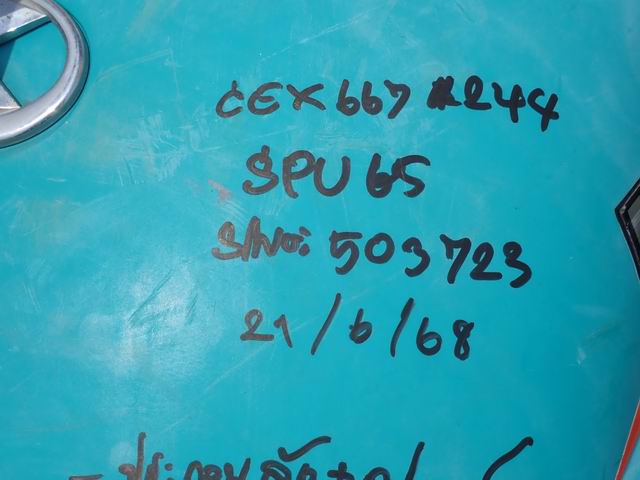 CEX667 #244
SPU 65
S/No: 503723
21/6/68